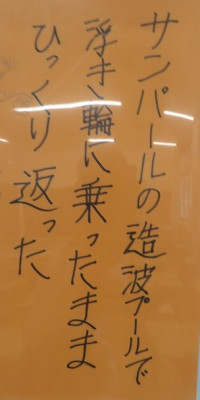 サンパールの造波プールで
浮き輪に乗ったまま
ひっくり返った